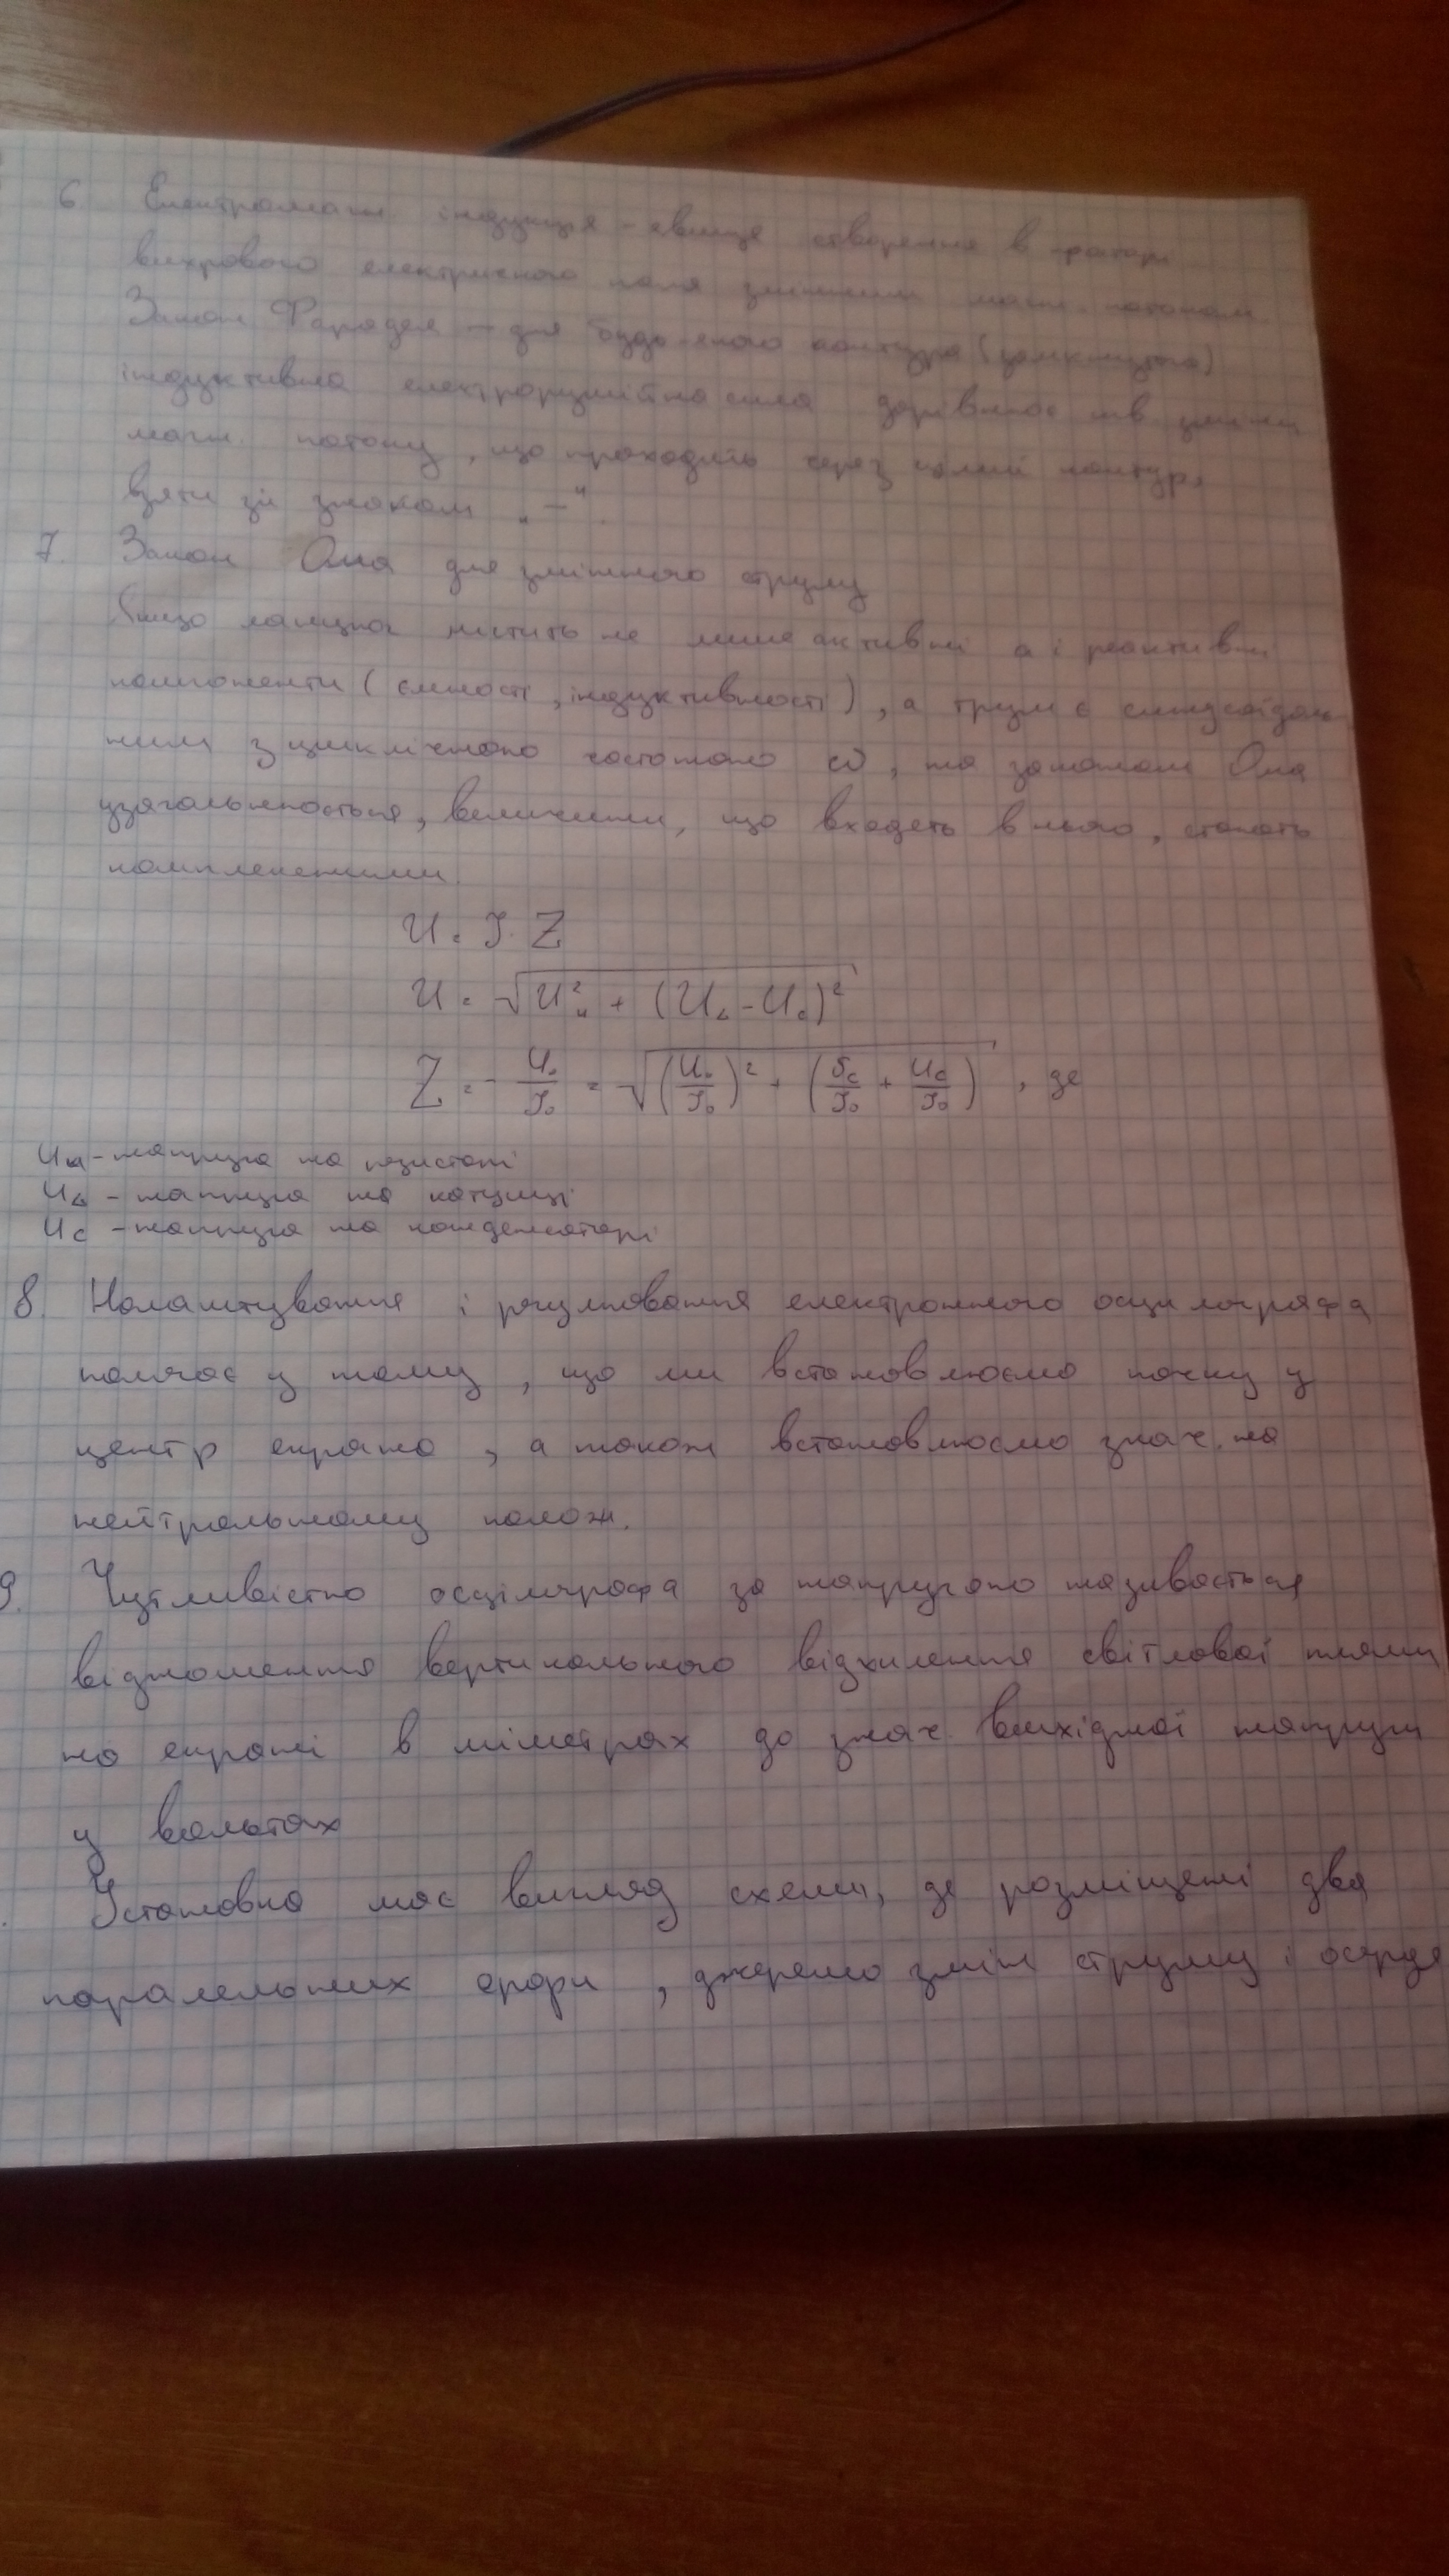 6 Електромагн. індукція - явище створення в просторі
вихрового електричного поля змінним магн. потоком
Закон Фарадея - для будь-якого контура (замкнутого)
індуктивна електрорушійна сила дорівнює шв зміни
магн. потоку, що проходить через цілий контур,
взяти зі знаком „-“.
7. Закон Ома для змінного струму
Якщо ланцюг містить не лише активні а і реактивні
компоненти (ємності, індуктивності), а трум є синусоїдаль
ним з циклічною частотою ω, то законом Ома
узагальнюється, величини, що входеть в нього, стають
комплексними.
U = I · Z
U = √U²ᵤ + (U_L - U_C)²
Z = - U₀/I₀ = √(U₀/I₀)² + (U_C/I₀ + U_C/I₀) , де
U_R - напруга на резисторі
U_L - напруга на катушці
U_C - напруга на конденсаторі
8. Налаштування і регулювання електронного осцилографа
полягає у тому, що ми встановлюємо точку у
центр екрана, а також встановлюємо знач. на
нейтральному полож.
9. Чутливістю осцілографа за напругою називається
відношення вертикального відхилення світлової плями
на екрані в міліметрах до знач. вихідної напруги
у вольтах
Установка має вигляд схеми, де розміщені два
паралельних , джерело змін струму і осерде